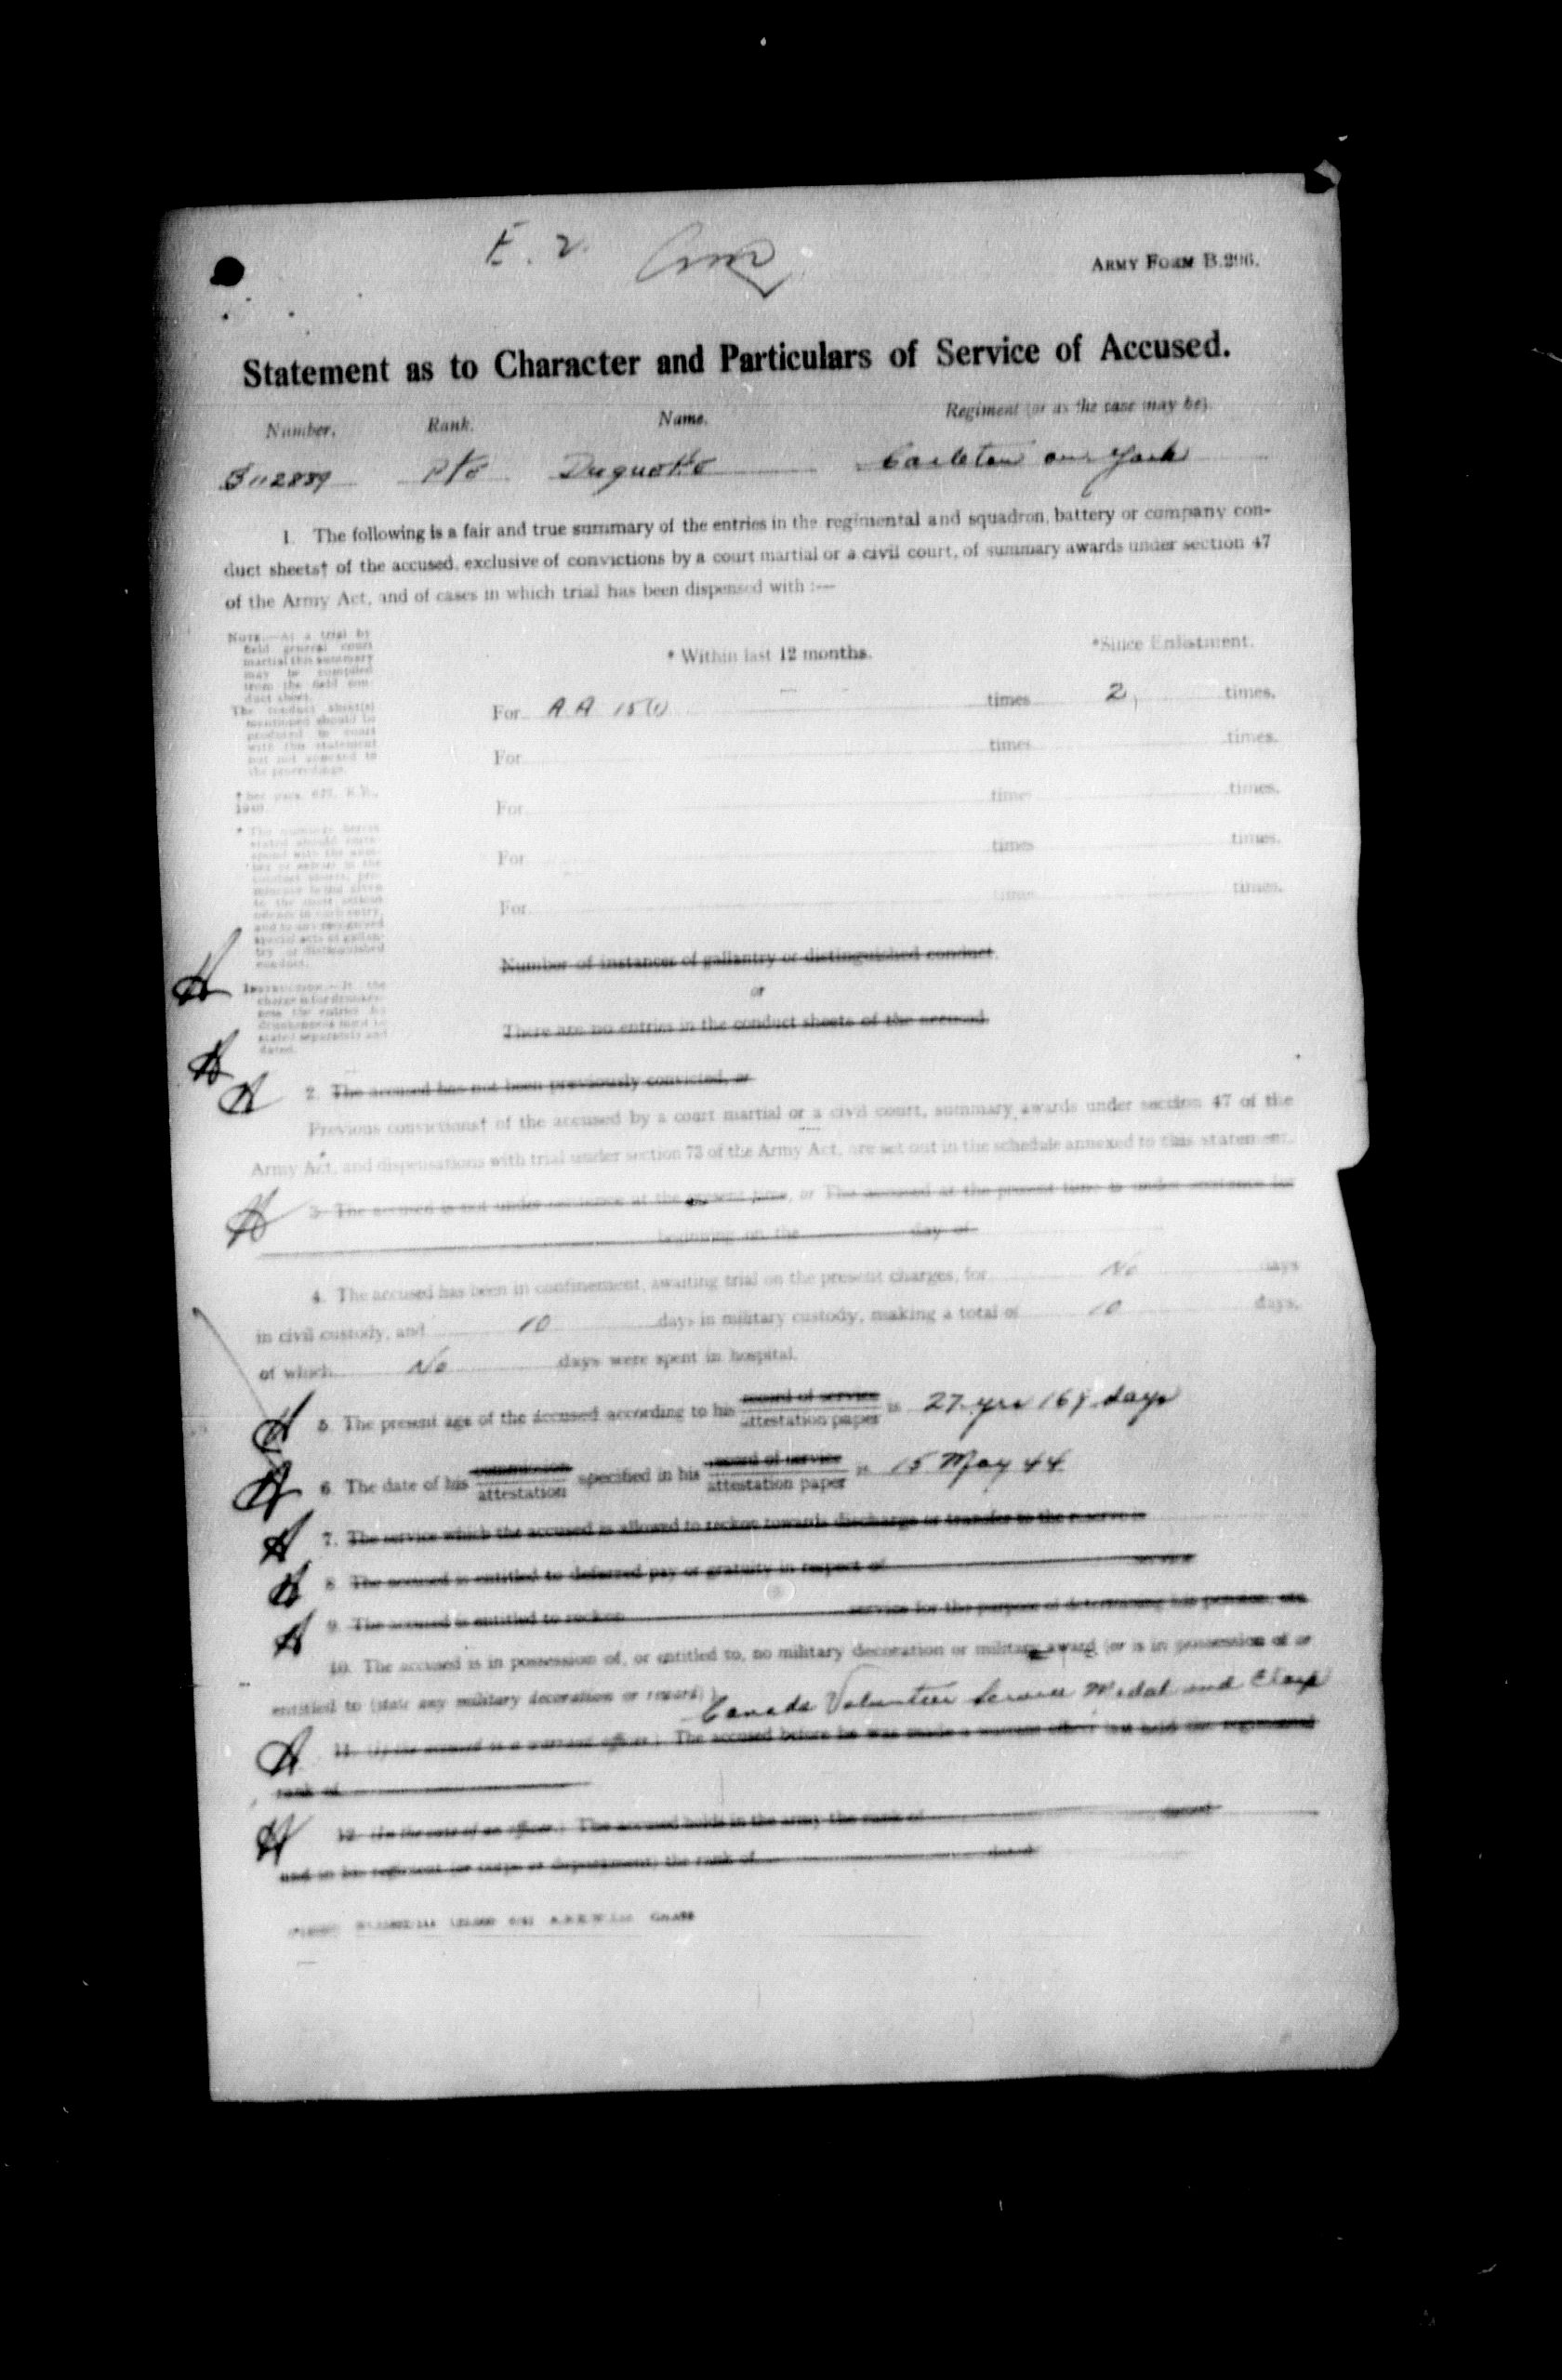 E. 2.
ARMY FORM B.296.
Statement as to Character and Particulars of Service of Accused.
Number. Rank. Name. Regiment (or as the case may be).
B112889 Pte Duquette Carleton and York
1. The following is a fair and true summary of the entries in the regimental and squadron, battery or company con-
duct sheets† of the accused, exclusive of convictions by a court martial or a civil court, of summary awards under section 47
of the Army Act, and of cases in which trial has been dispensed with :—
NOTE.—At a trial by
field general court
martial this summary
may be compiled
from the field con-
duct sheet.
The conduct sheet(s)
mentioned should be
produced in court
with this statement
but not annexed to
the proceedings.
* Within last 12 months. *Since Enlistment.
For A A 15(1) — — times 2 times.
For times times.
For times times.
For times times.
For times times.
Number of instances of gallantry or distinguished conduct.
or
There are no entries in the conduct sheets of the accused.
2. The accused has not been previously convicted, or
Previous convictions† of the accused by a court martial or a civil court, summary awards under section 47 of the
Army Act, and dispensations with trial under section 73 of the Army Act, are set out in the schedule annexed to this statement.
3. The accused is not under sentence at the present time, or The accused at the present time is under sentence for
beginning on the day of
4. The accused has been in confinement, awaiting trial on the present charges, for No days
in civil custody, and 10 days in military custody, making a total of 10 days,
of which No days were spent in hospital.
5. The present age of the accused according to his record of service / attestation paper is 27 yrs 167 days
6. The date of his commission / attestation specified in his record of service / attestation paper is 15 May 44
7. The service which the accused is allowed to reckon towards discharge or transfer to the reserve is
8. The accused is entitled to deferred pay or gratuity in respect of service
9. The accused is entitled to reckon service for the purpose of determining his pension, etc.
10. The accused is in possession of, or entitled to, no military decoration or military award (or is in possession of or
entitled to (state any military decoration or reward) ) Canada Volunteer Service Medal and Clasp
11. (If the accused is a warrant officer.) The accused before he was made a warrant officer last held the regimental
rank of
12. (In the case of an officer.) The accused holds in the army the rank of dated
and in his regiment (or corps or department) the rank of dated